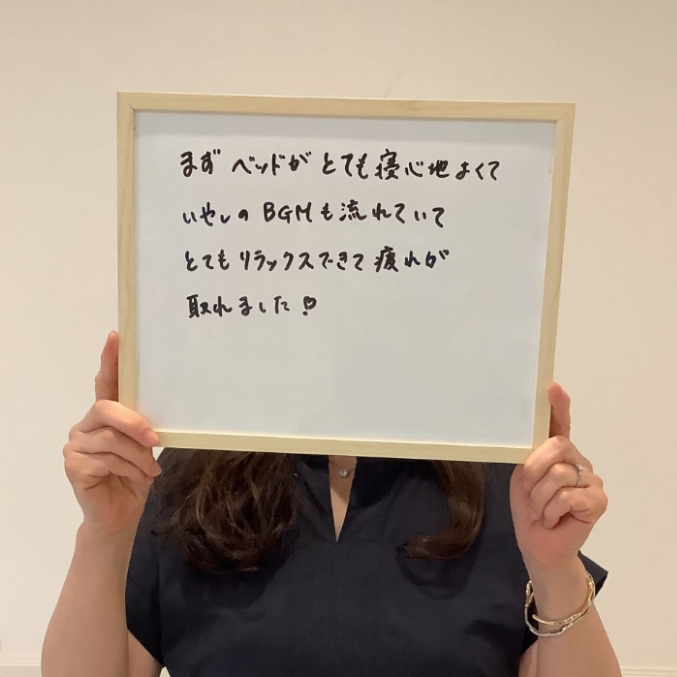 まずベッドがとても寝心地よくて
いやしのBGMも流れていて
とてもリラックスできて疲れが
取れました!♡